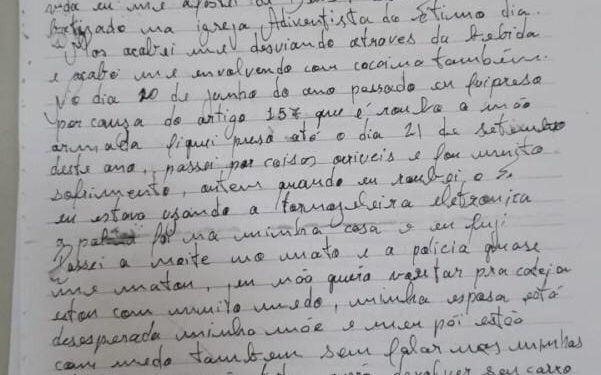 vida eu me afastei da
batizado na igreja Adventista do Sétimo dia.
Mas acabei me desviando atraves da bebida
e acabei me envolvendo com cocaina também.
No dia 20 de junho do ano passado eu fui preso
por causa do artigo 157, que é roubo a mão
armada fiquei preso até o dia 21 de setembro
deste ano, passei por coisas oriveis e fou muito
sofrimento, ontem quando eu roubei o S.
eu estava usando a tornozeleira eletronica
a foi na minha casa e eu fugi
Passei a noite no mato e a policia quase
me matou, eu não quero voltar pra cadeia
estou com muito medo, minha esposa está
desesperada minha mãe e meu pai estão
com medo tambem sem falar nas minhas
devolver seu carro